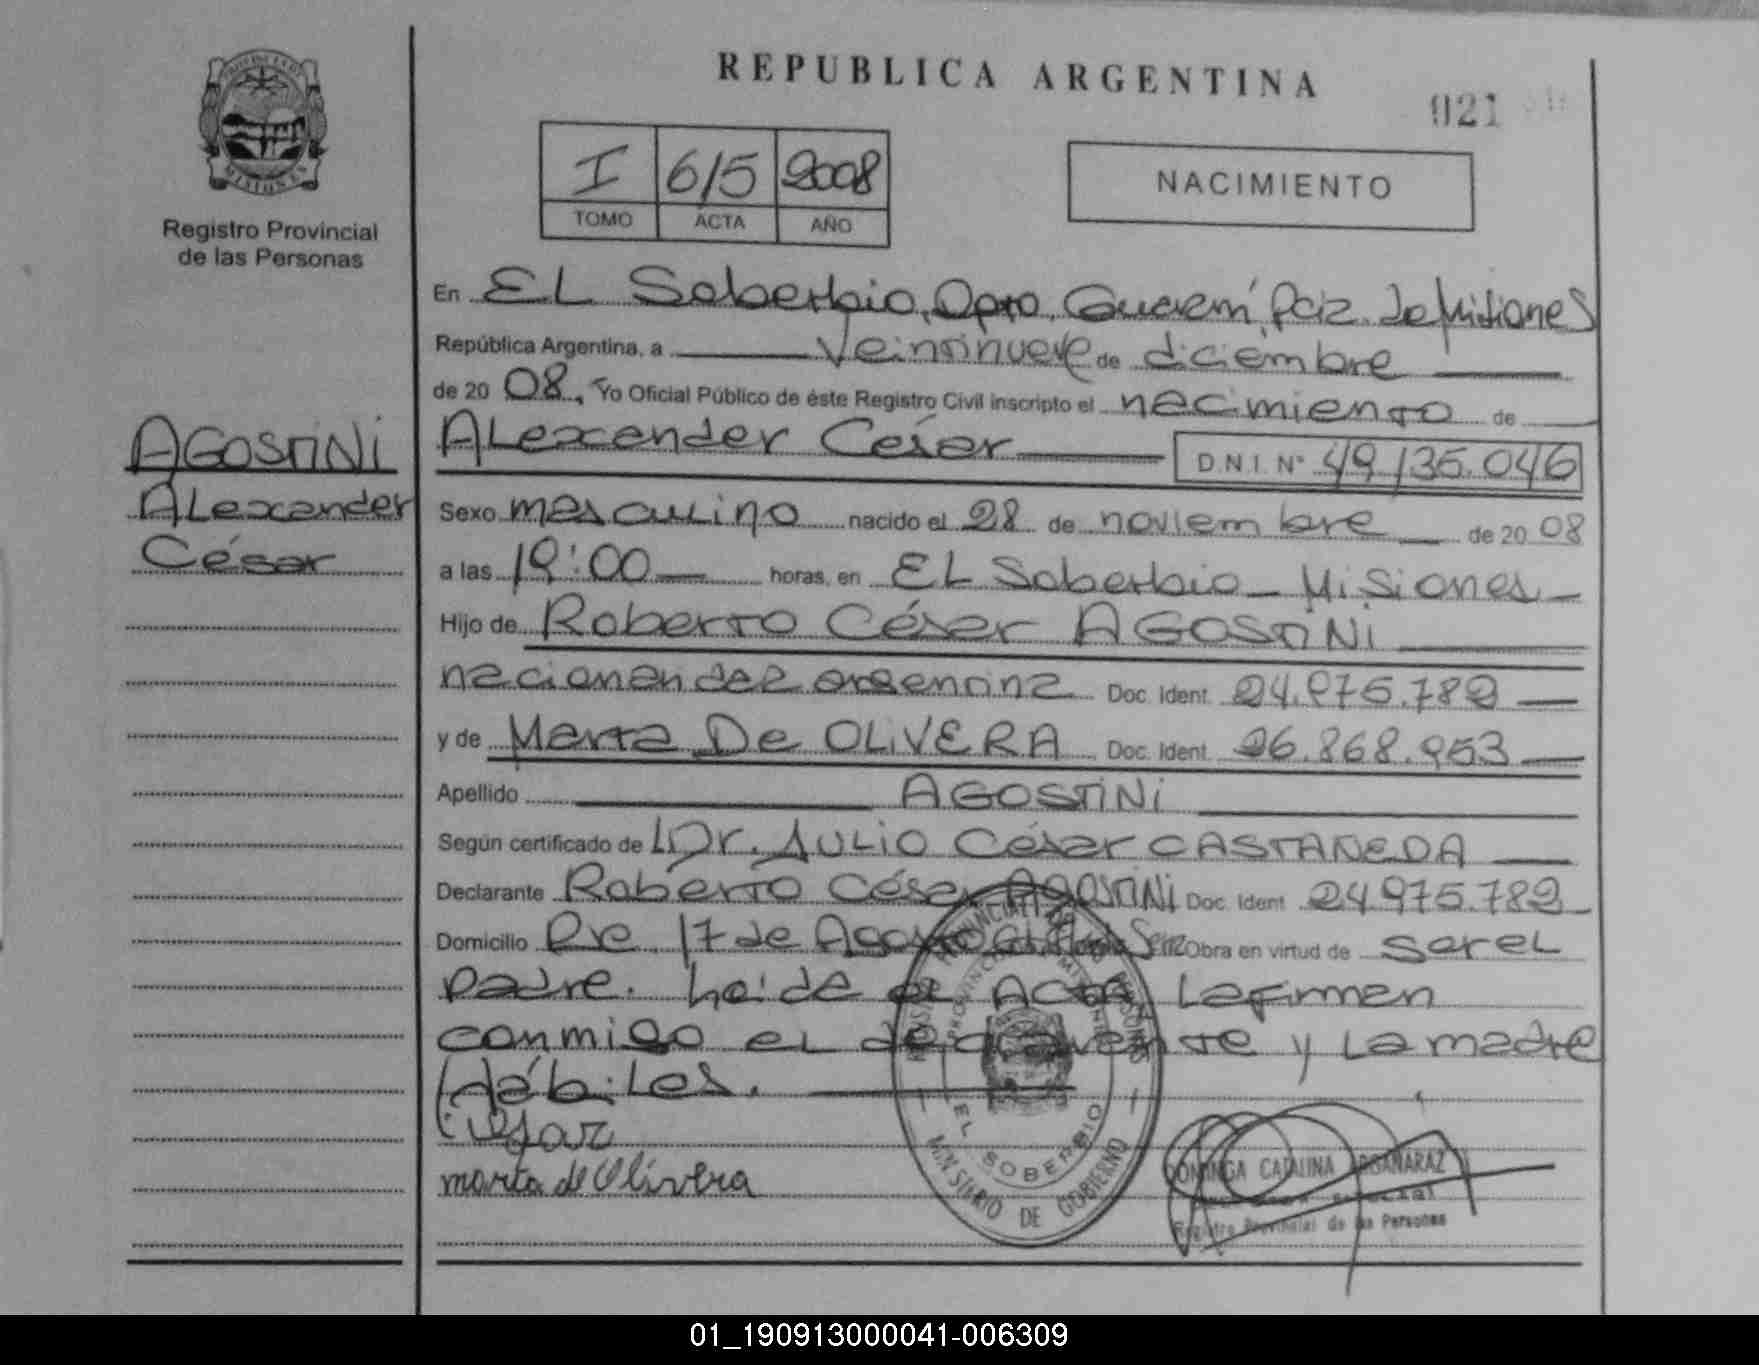 REPUBLICA ARGENTINA
021
PROVINCIA DE
MISIONES
Registro Provincial
de las Personas
I 615 2008
TOMO ACTA AÑO
NACIMIENTO
En EL Soberbio, Dpto. Guaraní, Pcia. de Misiones
República Argentina, a veintinueve de diciembre
de 20 08, Yo Oficial Público de éste Registro Civil inscripto el nacimiento de
Alexander César D.N.I. Nº 49.135.046
AGOSTINI
Alexander
César
Sexo masculino nacido el 28 de noviembre de 20 08
a las 19:00 horas, en EL Soberbio - Misiones -
Hijo de Roberto César AGOSTINI
nacionalidad argentina Doc. Ident. 24.975.782
y de Marta De OLIVERA Doc. Ident. 26.868.953
Apellido AGOSTINI
Según certificado de Dr. JULIO César CASTAÑEDA
Declarante Roberto César AGOSTINI Doc. Ident 24.975.782
Domicilio 17 de Agosto Obra en virtud de ser el
padre. Leída el ACTA, La firman
conmigo el declarante y La madre
Hábiles.
marta de Olivera
MINISTERIO DE GOBIERNO
EL SOBERBIO
DOMINGA CATALINA ARGAÑARAZ
Registro Provincial de las Personas
01_190913000041-006309